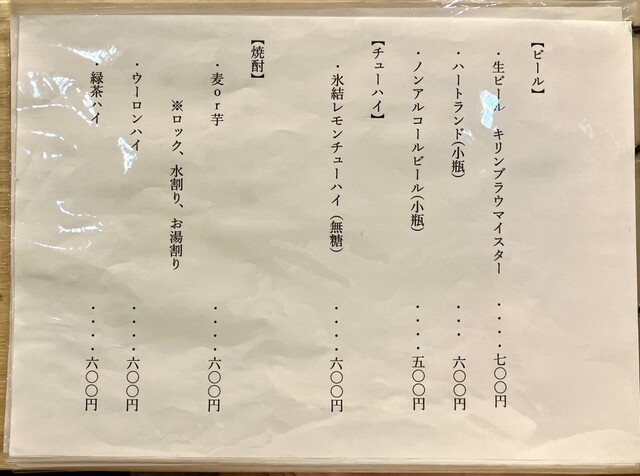 【ビール】
・生ビール　キリンブラウマイスター ・・・・七〇〇円
・ハートランド(小瓶) ・・・六〇〇円
・ノンアルコールビール(小瓶) ・・・・五〇〇円
【チューハイ】
・氷結レモンチューハイ(無糖) ・・・・六〇〇円
【焼酎】
・麦or芋 ・・・・六〇〇円
※ロック、水割り、お湯割り
・ウーロンハイ ・・・・六〇〇円
・緑茶ハイ ・・・・六〇〇円